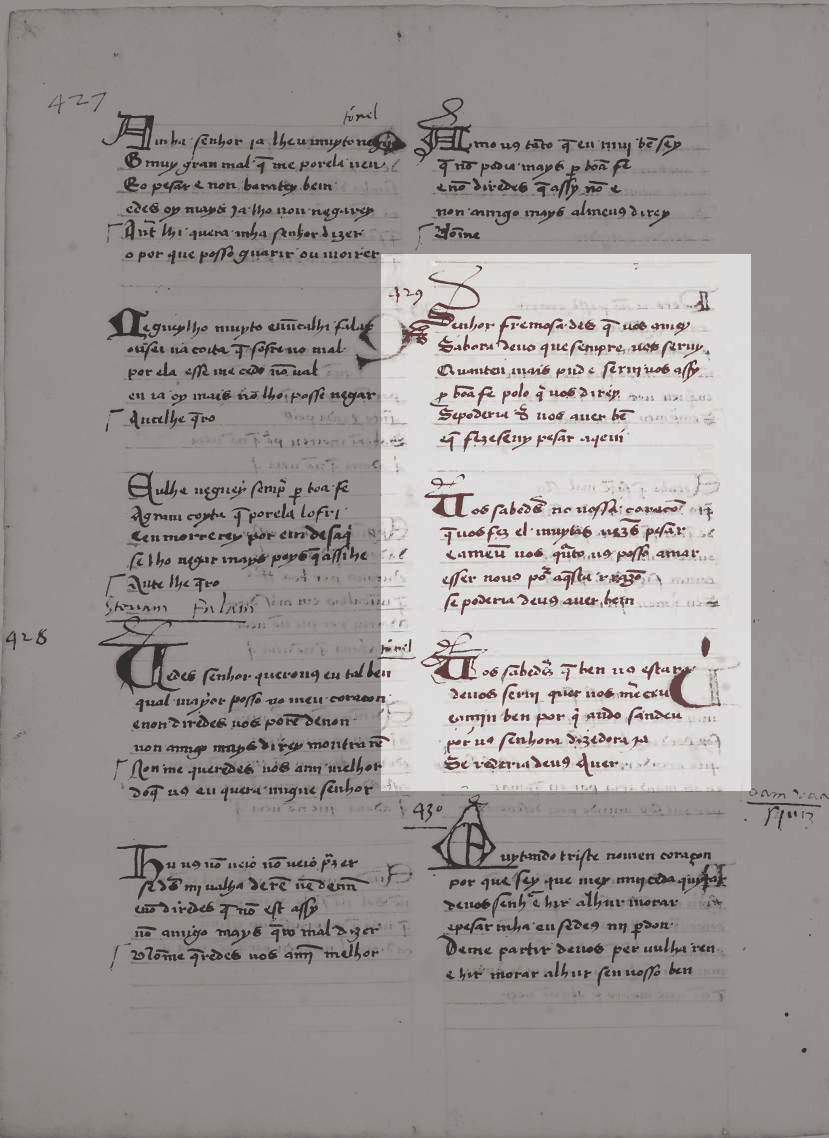 427
tornel
Minha senhor ia lheu muyto neguey
O muy gran mal q̄ me porela ueu
Eo pesar e non baratey bem
edes oy mays ia lho non negarey
Ant lhi querra mha senhor dizer
o por que posso guarir ou moirer
Negueylho muyto e nūcalhi falar
ousei na coita q̄ sofre no mal
por ela esse me cedo nō ual
en ia oy mais nō lho posso negar
Ante lhe q̄ro
Eulhe neguey semp̄ p̱ boa fe
A gram coyta q̄ porela sofri
E en morrerey por en desaq̇
se lho negar mays poys q̄ assi he
Ante lhe q̄ro
Steuam Faiam
428
tornel
Vedes senhor querouꝯ eu tal ben
qual mayor posso no meu coraçon
enon diredes uos porē de non
non amigo mays direy montra rē
Non me queredes uos a mi melhor
do q̄ uꝯ eu quera migue senhor
Hu uꝯ nō ueio nō ueio p̄zer
se d̄s mi ualha de rē nē de mī
e nō diredes q̄ nō est assy
nō amigo mays q̄ro mal dizer
Nō me q̄redes uos a mī melhor
Amo uꝯ tāto q̄ eu mui bē sey
q̄ nō podia mays p̱ boa fe
e nō diredes q̄ assy nō e
non amigo mays al meuꝯ direy
Nōme
429
Senhor fremosa des q̄ uos amey
Sabora deus que sempre uos seruy
Quanteu mais pud e serui uos assy
p̱ boa fe polo q̇ uos direy
Se poderia d̄ uos auer bē
e q̄ fezesseny pesar a que mi
Vos sabeds no uossa coraçō
q̄ uos fez el muytas uezs pesar
e a meu uos q̄nto uꝯ posso amar
esser nouꝯ por aq̄sta razō
se poderia deuꝯ auer bein
tornel
Vos sabedes q̄ ben uꝯ estara
deuos serui quer uos merceu
e a min ben por q̇ ando sandeu
por uꝯ senhora dizedora ia
Se poderia deuꝯ Auer
430
Cuytando triste no men coraçon
por que sey que mey mui ceda quytar
deuos senhor e hir alhur morar
e pesar mha en se deus mi p̱don
De me partir deuos per nulha ren
e hir morar alhur sen uosso ben